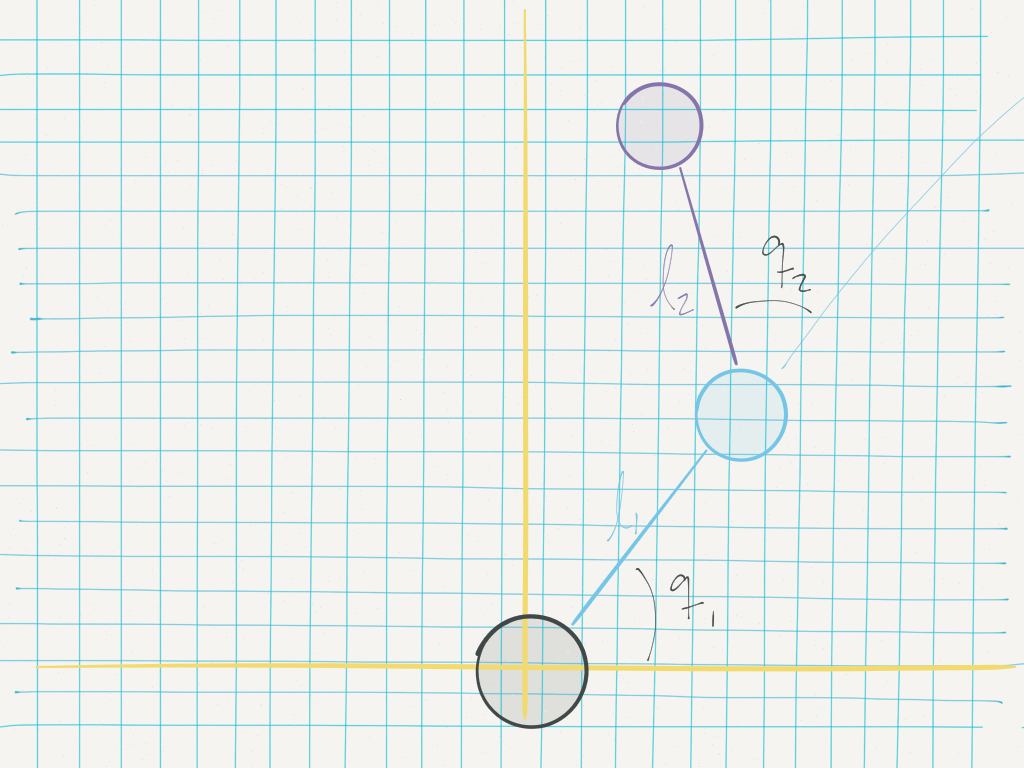 q2
l2
l1
q1